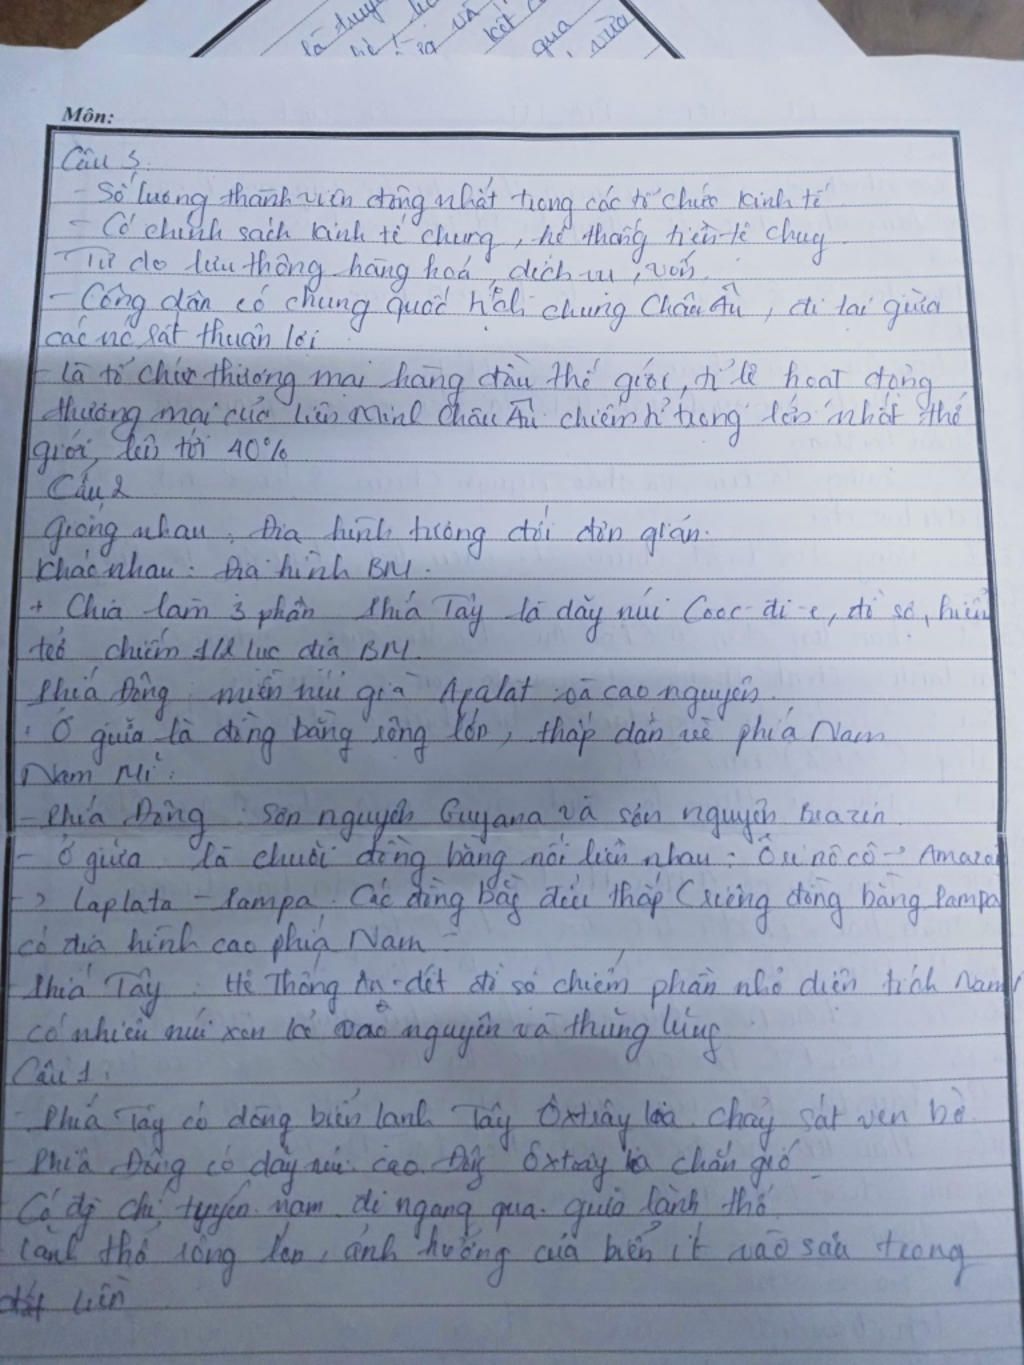 là truyền
kết
qua
vừa
Môn:
Câu 3.
- Số lượng thành viên đông nhất trong các tổ chức kinh tế
- Có chính sách kinh tế chung, hệ thống tiền tệ chug
- Tự do lưu thông hàng hoá, dịch vụ, vốn.
- Công dân có chung quốc tịch chung Châu Âu, đi lại giữa
các nc rất thuận lợi
- là tổ chức thương mại hàng đầu thế giới, tỉ lệ hoạt động
thương mại của liên minh Châu Âu chiếm tỉ trọng lớn nhất thế
giới, lên tới 40%
Câu 2
Giống nhau: Địa hình tương đối đơn giản.
Khác nhau: Địa hình BM.
+ Chia làm 3 phần Phía Tây là dãy núi Cooc-đi-e, đồ sộ, hiểm
trở chiếm 1/2 lục địa BM.
Phía Đông: miền núi già Apalat và cao nguyên.
: Ở giữa là đồng bằng rộng lớn, thấp dần về phía Nam
Nam Mĩ:
- Phía Đông: Sơn nguyên Guyana và sơn nguyên Brazin
- Ở giữa là chuỗi đồng bằng nối liền nhau: Ôrinôcô -> Amazon
-> Laplata - Pampa. Các đồng bằg đều thấp (riêng đồng bằng Pampa
có địa hình cao phía Nam -
Phía Tây: Hệ Thống An-đét đồ sộ chiếm phần nhỏ diện tích Nam
có nhiều núi xen kẽ cao nguyên và thũng lũng
Câu 1:
- Phía Tây có dòng biển lạnh Tây Ôxtrâylia chảy sát ven bờ.
- Phía Đông có dãy núi cao Đôg Ôxtrâylia chắn gió
- Có đg chí tuyến nam đi ngang qua giữa lãnh thổ
- Lãnh thổ rộng lớn, ảnh hưởng của biển ít vào sâu trong
đất liền